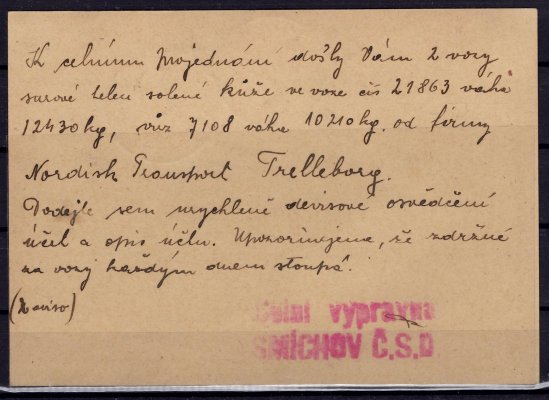 K celnímu projednání došly Vám 2 vozy
surové telecí solené kůže ve voze čís 21863 váha
12430kg, vůz 7108 váha 10210kg. od firmy
Nordisk Transport Trelleborg.
Dodejte sem urychleně devisové osvědčení
účel a opis účtu. Upozorňujeme, že zdržné
za vozy každým dnem stoupá.
(2 aviso)
Celní výpravna
SMÍCHOV Č.S.D